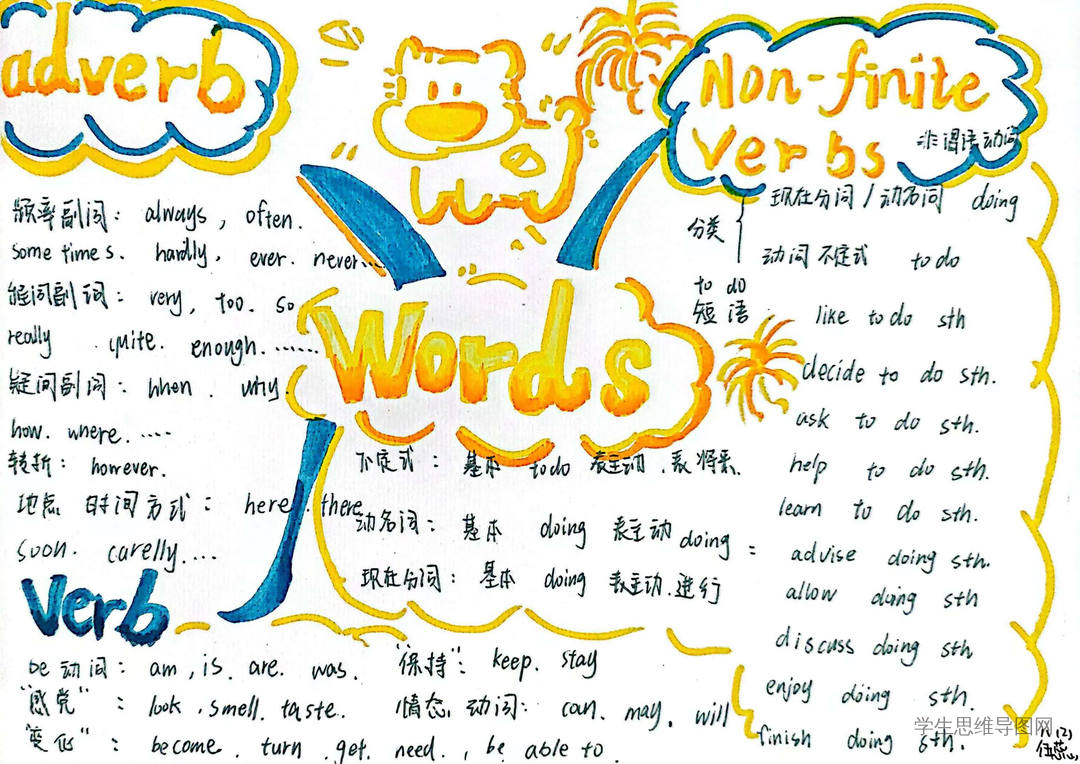 adverb
频率副词: always, often.
sometimes. hardly, ever. never...
疑问副词: very, too. so
really quite. enough. ......
疑问副词: when. why.
how. where. ....
转折: however.
地点 时间方式: here. there
soon. carelly. ...
Words
Non-finite
verbs 非谓语动词
分类
现在分词/动名词 doing
动词不定式 to do
to do
短语 like to do sth
decide to do sth.
ask to do sth.
help to do sth.
learn to do sth.
doing = advise doing sth.
allow doing sth
discuss doing sth
enjoy doing sth.
finish doing sth.
不定式: 基本 todo 表主动.表将来
动名词: 基本 doing 表主动
现在分词: 基本 doing 表主动.进行
Verb
be 动词: am, is. are. was. "保持": keep. stay
"感觉": look, smell. taste. 情态动词: can. may. will
"变化": become. turn. get. need., be able to
学生思维导图网